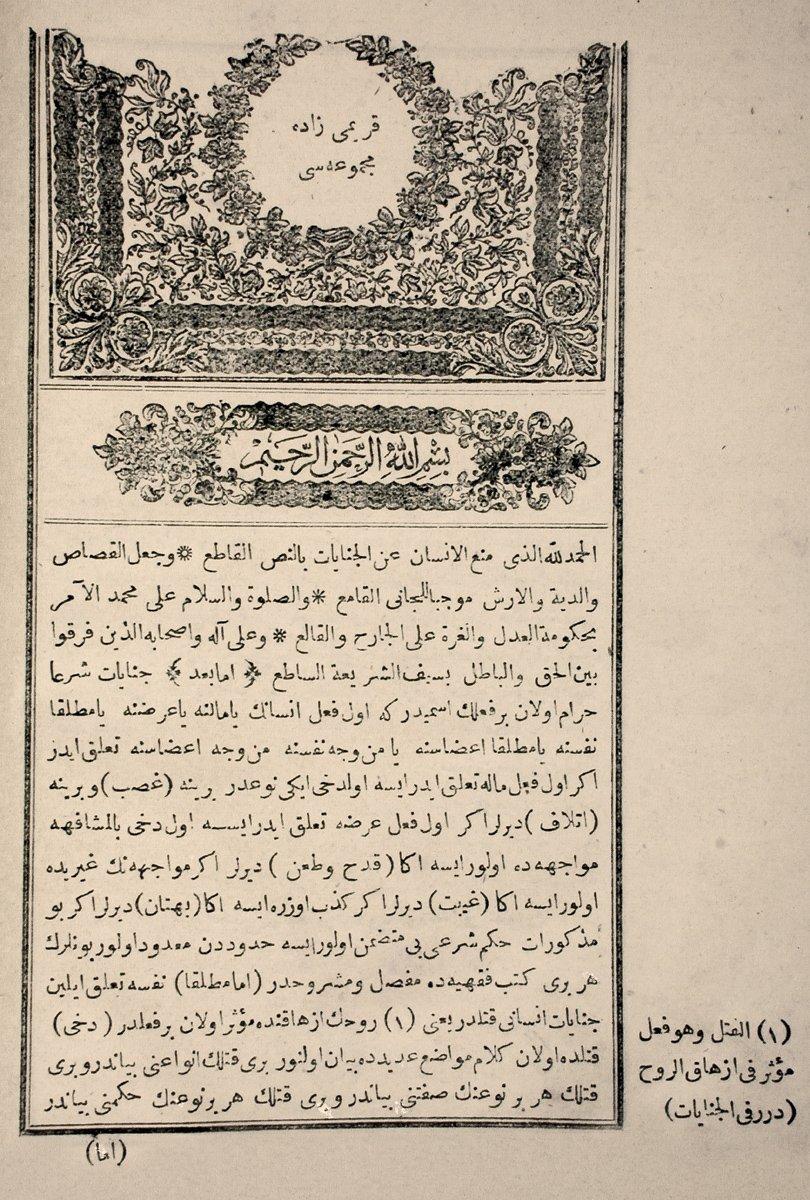 قريمى زاده
مجموعه‌سى
بِسْمِ اللهِ الرَّحْمٰنِ الرَّحِيمِ
الحمدلله الذى منع الانسان عن الجنايات بالنص القاطع * وجعل القصاص
والدية والارش موجبا للجانى القامع * والصلوة والسلام على محمد الآمر
بحكومة العدل والغرة على الجارح والقالع * وعلى آله واصحابه الذين فرقوا
بين الحق والباطل بسيف الشريعة الساطع ﴿ امابعد ﴾ جنايات شرعا
حرام اولان برفعلك اسميدركه اول فعل انسانك يامالنه ياعرضنه يامطلقا
نفسنه يامطلقا اعضاسنه يا من وجه نفسنه من وجه اعضاسنه تعلق ايدر
اكر اول فعل ماله تعلق ايدرايسه اولدخى ايكى نوعدر برينه (غصب) وبرينه
(اتلاف) ديرلر اكر اول فعل عرضه تعلق ايدرايسه اول دخى بالمشافهه
مواجهه‌ده اولورايسه اكا (قدح وطعن) ديرلر اكرمواجهه‌نك غيريده
اولورايسه اكا (غيبت) ديرلر اكر كذب اوزره ايسه اكا (بهتان) ديرلر اكر بو
مذكورات حكم شرعى‌يى متضمن اولورايسه حدوددن معدود اولور بونلرك
هر برى كتب فقهيه‌ده مفصل ومشروحدر (امامطلقا) نفسه تعلق ايلين
جنايات انسانى قتلدر يعنى (١) روحك ازهاقنده مؤثر اولان برفعلدر (دخى)
قتلده اولان كلام مواضع عديده‌ده بيان اولنور برى قتلك انواعنى بياندر وبرى
قتلك هر بر نوعنك صفتنى بياندر وبرى قتلك هر برنوعنك حكمنى بياندر
(اما)
(١) القتل وهو فعل
مؤثر فى ازهاق الروح
(درر فى الجنايات)